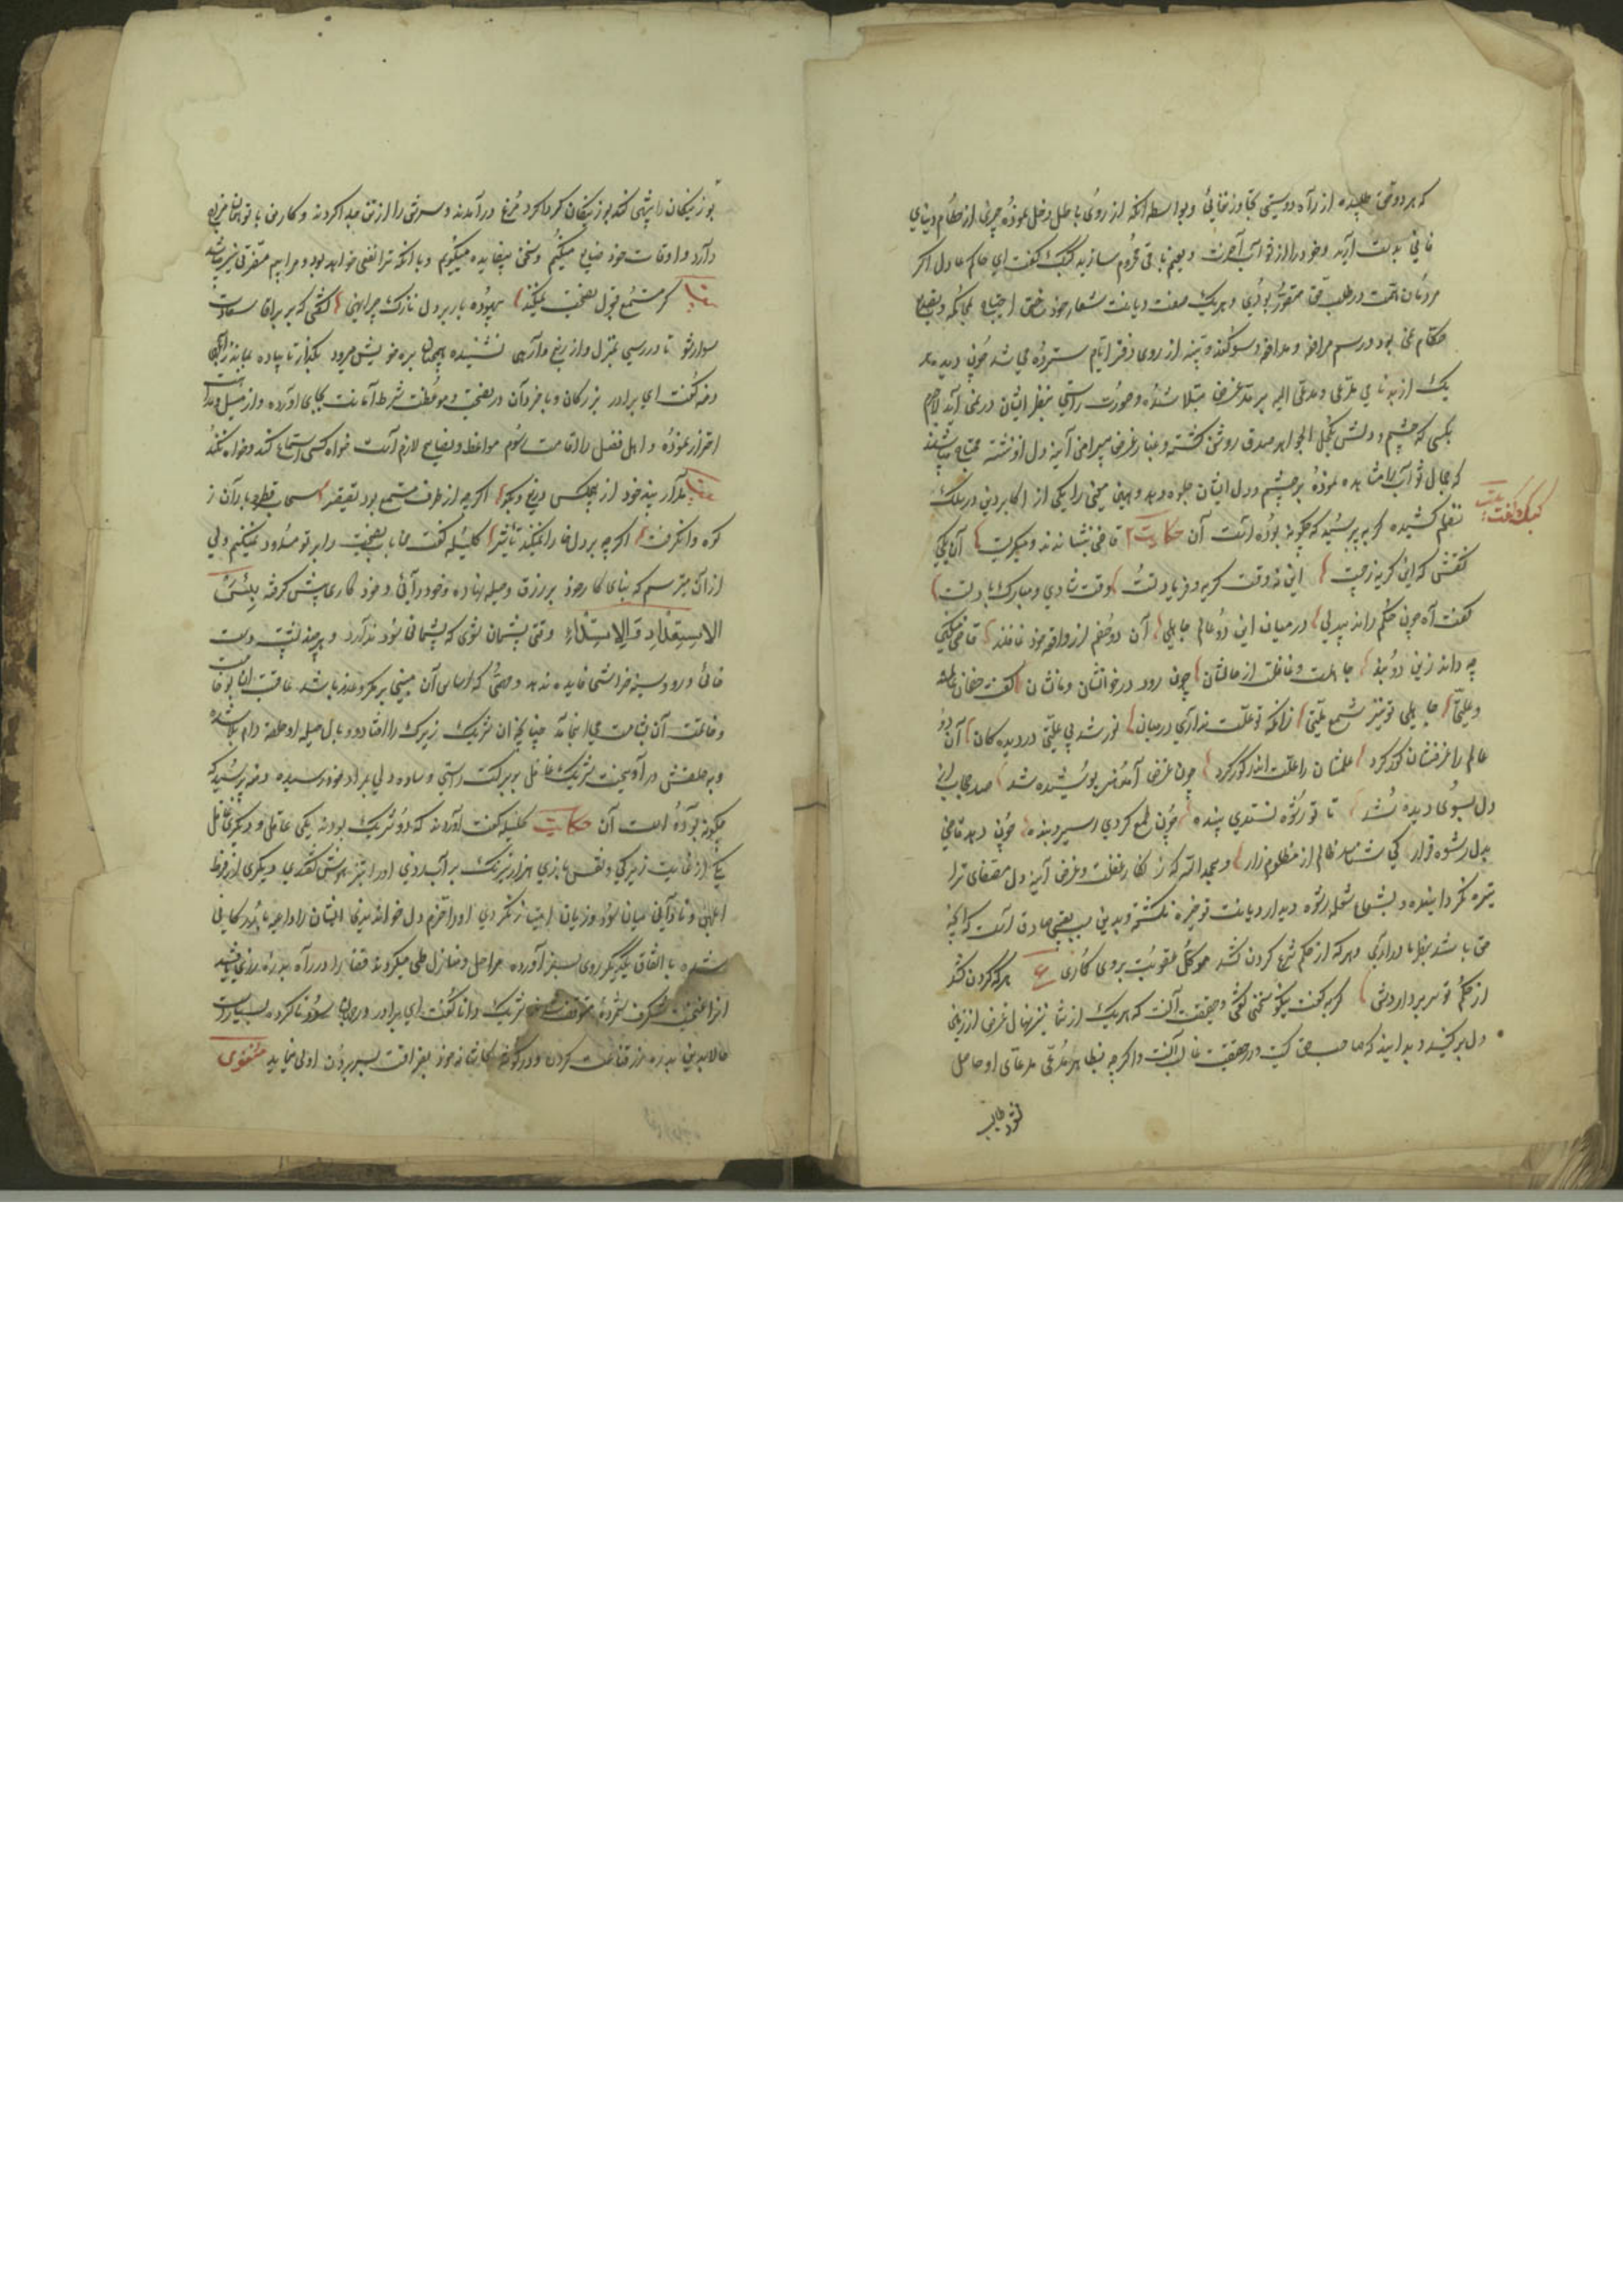 که هر دو حق طلبیده از راه دوستی تجاوز ننمائید و بواسطه آنکه از روی باطل دخل نموده چیزی از حطام دنیای
فانی بدست آرید وخود را از ثواب آخرت و نعیم باقی محروم سازید کبک گفت ای حاکم عادل اگر
مردمان همت در طلب حق مقصور بودی و هر یک صفت دیانت شعار خود ساختی احتیاج بحاکم و تصدیع
حکام نمی بود و رسم مرافعه و مدافعه و سوگند و بینه از روی دفتر ایام سترده می شد چون دیده هر
یک از مدعی و مدعی الیه برمد غرض مبتلا شده و صورت راستی بنظر ایشان در نمی آید لاجرم
بکسی که چشم دلش بکحل الجواهر صدق روشن گشته و غبار غرض پیرامن آینه دل او ننشسته محتاج میباشند
که جمال ثواب را مشاهده نموده بر چشم و دل ایشان جلوه دهد و همین معنی را یکی از اکابر دین در سلک
نظم کشیده گربه پرسید که چگونه بوده است آن حکایت قاضی بنشاندند و میگریست آن یکی
کبک گفت بیت
گفتش که این گریه ز چیست این نه وقت گریه و فریاد تست وقت شادی و مبارک باد تست
گفت آه چون حکم راند بیدلی در میان این دو عالم جاهلی آن دو خصم از واقعه خود غافلند قاضی مسکین
چه داند زین دو بند جاهلست و غافلت از حالشان چون رود در خونشان و مالشان گفت خصمان عالمند
و علتی جاهلی تو لیک شمع ملتی زانکه تو علت نداری در میان نور شد بی علتی در دیدگان آن دو
عالم را غرضشان کور کرد علمشان را علت اندر گور کرد چون غرض آمد هنر پوشیده شد صد حجاب از
دل بسوی دیده شد تا تو رشوه نستدی بینده چون طمع کردی اسیر و بنده چون دهد قاضی
بدل رشوه قرار کی شناسد ظالم از مظلوم زار و بحمد الله که زنگار غفلت و غرض آینه دل مصفای ترا
تیره نگردانیده و بشومی شعله رشوه دیدار دیانت تو خیره نگشته و بدین سبب یقین صادق است که آنچه
حق باشد بنظر ما در آری و هر که از حکم شرع گردن کشد موکل عقوبت بر وی گماری ع هر که گردن کشد
از حکم تو سر بردارش گربه گفت نیکو سخنی گفتی و حقیقت آنست که هر یک از شما نیز نهال غرض از زمین
دل برکنید و بدانید که صاحب حق کیست و در حقیقت غالب آنست و اگر چه بظاهر مدعی مدعای او حاصل
نشود طالب
بوزینگان را پیشی کند بوزینگان گرداگرد مرغ درآمدند و سرش را از تن جدا کردند و کار من با تو همان مزاج
دارد و اوقات خود ضایع میکنم و سخن بیفایده میگویم و با آنکه ترا نفعی نخواهد بود مرا بیم مضرتی نیز میباشد
بیت گر مستمع قبول نصیحت نمیکند بیهوده بار بر دل نازک چرا نهی گفتی که بر براق سعادت
سوار شو تا در رسی بمنزل و از رنج وا رهی نشنیده همچنان بره خویش میرود بگذار تا پیاده بماند ز ابلهی
دمنه گفت ای برادر بزرگان و با خردان در نصیحت و موعظت شرط امانت بجای آورده و از میل و مداهنت
احتراز نموده و اهل فضل را اقامت رسوم مواعظ و نصایح لازم است خواه کسی استماع کند و خواه نکند
بیت مدار پند خود از هیچکس دریغ و بگو اگرچه از طرف مستمع بود تقصیر سحاب قطره باران ز
کوه وانگرفت اگرچه بر دل خارا نمیکند تاثیر کلیله گفت من باب نصیحت را بر تو مسدود نمیکنم ولی
از آن میترسم که بنای کار خود بر زرق و حیله نهاده و خود رائی و خود کاری پیش گرفته بئس
الاستعداد والاستبداد وقتی پشیمان شوی که پشیمانی سود ندارد و هر چند پشت دست
خائی و روی سینه خراشی فایده ندهد و مهمی که اساس آن مبنی بر مکر و غدر باشد عاقبت آن بوخامت
وخاتمت آن بشامت می انجامد چنانچه آن شریک زیرک را افتاد و وبال حیله او حلقه دام بلا شده
در حلقش در آویخت و شریک غافل ببرکت راستی و ساده دلی بمراد خود رسیده دمنه پرسید که
چگونه بوده است آن حکایت کلیله گفت آورده اند که دو شریک بودند یکی عاقل و دیگری غافل
یکی از غایت زیرکی و نقش بازی هزار نیرنگ بر آب زدی او را تیزهوش گفتندی و دیگری از فرط
ابلهی و نادانی میان سود و زیان امتیاز نکردی او را خرم دل خواندندی ایشان را داعیه بازرگانی
شده باتفاق یکدیگر روی بسفر آورده مراحل و منازل طی میکردند قضا را در راه بدره زری یافتند
آنرا غنیمت شگرف شمرده متوقف شدند شریک دانا گفت ای برادر در جهان سود ناکرده بسیارست
حالا بدین بدره زر قناعت کردن و در گوشه کاشانه خود بفراغت بسر بردن اولی می نماید مثنوی